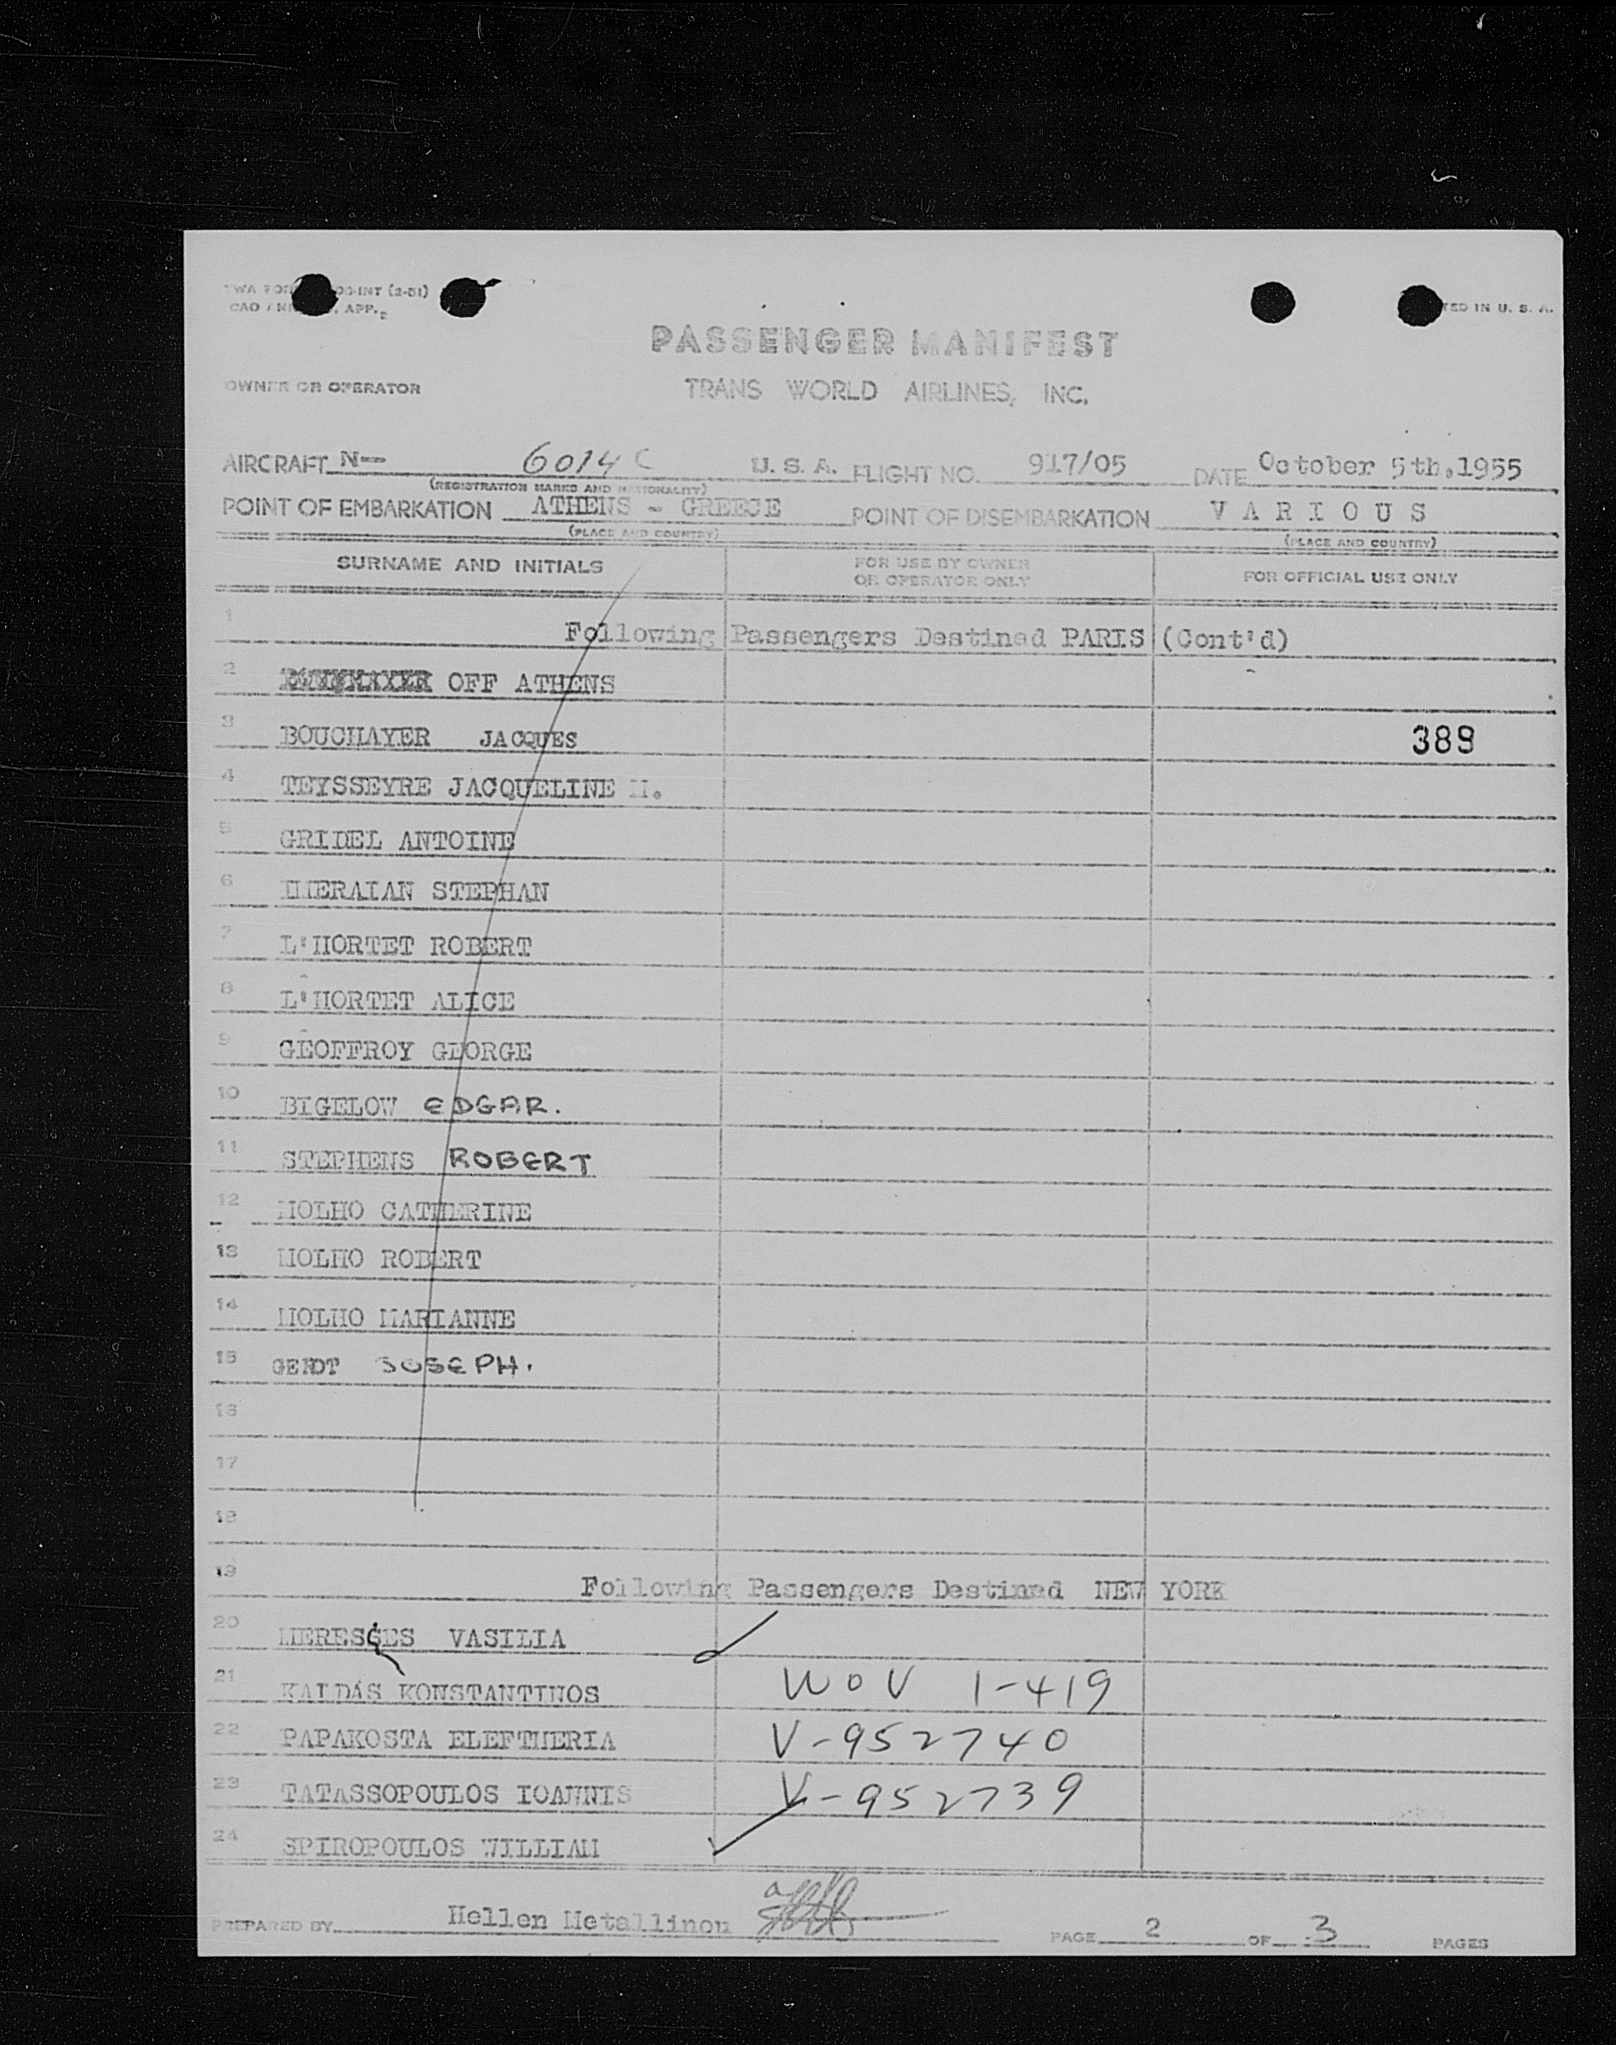 TWA FOR
O-INT (2-51)
CAO
APP.
TED IN U. S. A.
PASSENGER MANIFEST
OWNER OR OPERATOR TRANS WORLD AIRLINES, INC.
AIRCRAFT N- 6014 C U. S. A. FLIGHT NO. 917/05 DATE October 5th.1955
(REGISTRATION MARKS AND NATIONALITY)
POINT OF EMBARKATION ATHENS - GREECE POINT OF DISEMBARKATION VARIOUS
(PLACE AND COUNTRY) (PLACE AND COUNTRY)
SURNAME AND INITIALS FOR USE BY OWNER OR OPERATOR ONLY FOR OFFICIAL USE ONLY
1 Following Passengers Destined PARIS (Cont'd)
2 OFF ATHENS
3 BOUCHAYER JACQUES 389
4 TEYSSEYRE JACQUELINE
5 GRIDEL ANTOINE
6 STEPHAN
7 L'HORTET ROBERT
8 L'HORTET ALICE
9 GEOFFROY GEORGE
10 BIGELOW EDGAR.
11 STEPHENS ROBERT
12 MOLHO CATHERINE
13 MOLHO ROBERT
14 MOLHO MARIANNE
15 JOSEPH.
16
17
18
19 Following Passengers Destined NEW YORK
20 VASILIA
21 KALDAS KONSTANTINOS WOV 1-419
22 PAPAKOSTA ELEFTHERIA V-952740
23 TATASSOPOULOS IOANNIS V-952739
24 SPIROPOULOS WILLIAM
PREPARED BY Hellen Metallinou PAGE 2 OF 3 PAGES